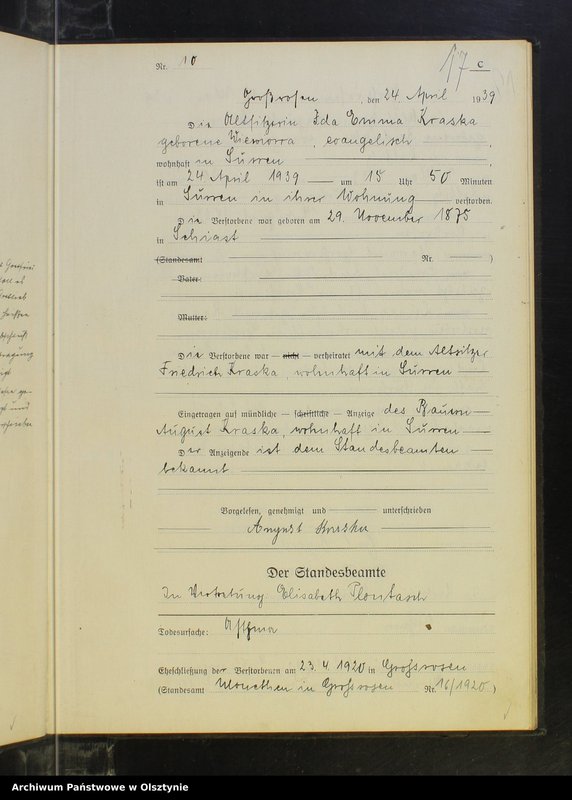 Nr. 10
17 C
Großrosen, den 24. April 1939
Die Altsitzerin Ida Emma Kraska
geborene Wiemorra, evangelisch,
wohnhaft in Surren,
ist am 24 April 1939 um 15 Uhr 50 Minuten
in Surren in ihrer Wohnung verstorben.
Die Verstorbene war geboren am 29. November 1875
in Schiast
(Standesamt Nr. )
Vater:
Mutter:
Die Verstorbene war — nicht — verheiratet mit dem Altsitzer
Friedrich Kraska, wohnhaft in Surren
Eingetragen auf mündliche — schriftliche — Anzeige des Bauern
August Kraska, wohnhaft in Surren
Der Anzeigende ist dem Standesbeamten
bekannt
Vorgelesen, genehmigt und unterschrieben
August Kraska
Der Standesbeamte
In Vertretung: Elisabeth
Todesursache: Asthma
Eheschließung der Verstorbenen am 23. 4. 1920 in Grossrosen
(Standesamt in Grossrosen Nr. 16/1920.)
Archiwum Państwowe w Olsztynie